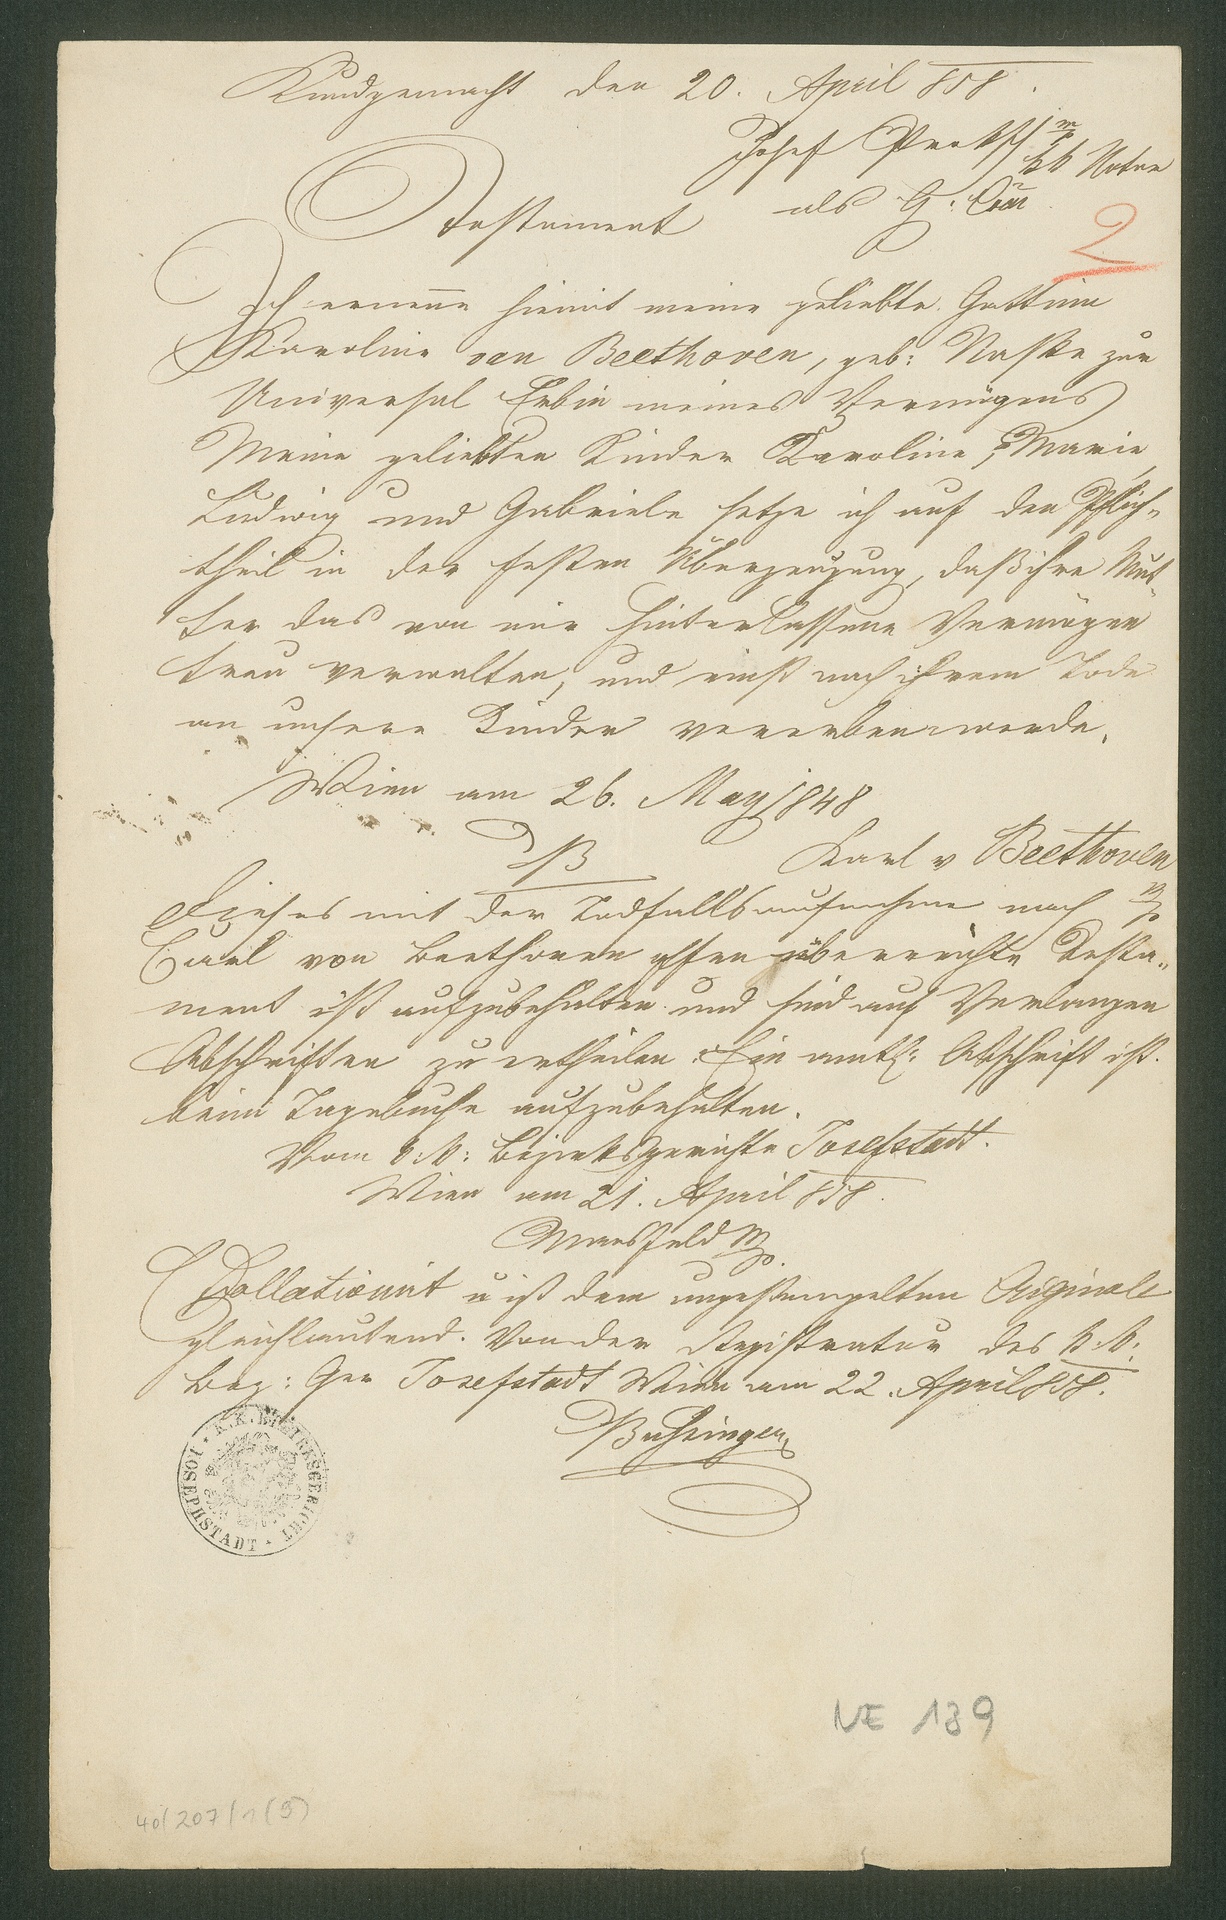 Kundgemacht den 20. April 858.
Josef Prokſch mp
kk Notar
als G: Cõär
Testament
2
Ich ernenne hiemit meine geliebte Gattinn
Karoline van Beethoven, geb: Naske zur
Universal Erbin meines Vermögens
Meine geliebten Kinder Karoline, Marie,
Ludwig und Gabriele setze ich auf den Pflich-
theil in der festen Überzeugung, daß ihre Mut-
ter das von mir hinterlassene Vermögen
treu verwalten, und einst nach ihrem Tode
an unsere Kinder vererben werde.
Wien am 26. May 1848
Karl v Beethoven
mp
Dieses mit der Todfallsaufnahme nach
Carl von Beethoven offen überreichte Testa-
ment ist aufzubehalten und sind auf Verlangen
Abschriften zu ertheilen. Ein amtl: Abschrift ist
beim Tagebuche aufzubehalten.
Vom k.k: Bezirksgerichte Josefstadt.
Wien am 21. April 858.
Mansfeld mp.
Collationirt u ist dem ungestempelten Originale
gleichlautend. Von der Registratur des k.k:
Bez: Ger Josefstadt Wien am 22. April 858.
Buhringer
K.K. BEZIRKSGERICHT JOSEPHSTADT
NE 139
40/207/1(5)